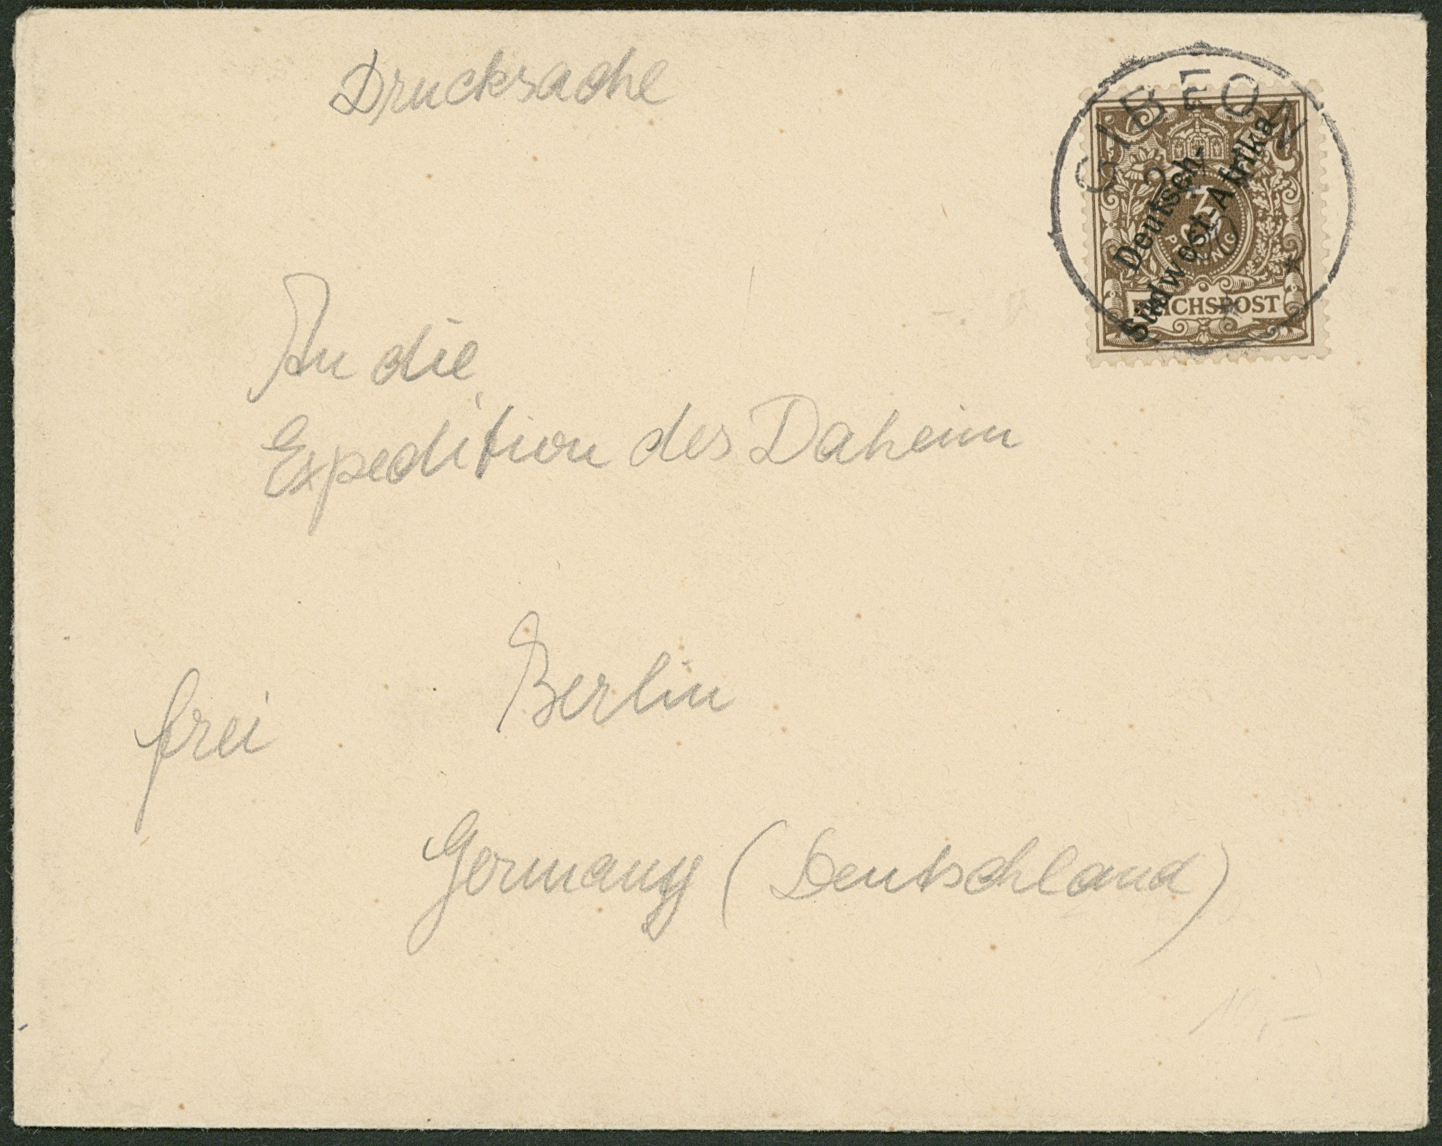 Drucksache
GIBEON
3
PFENNIG
REICHSPOST
Deutsch-
Südwest-Afrika
An die
Expedition des Daheim
Berlin
frei
Germany (Deutschland)